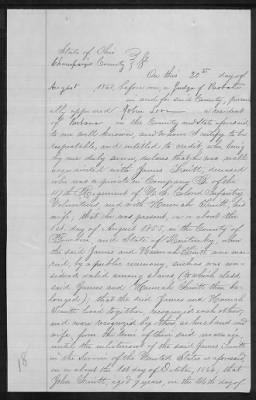 State of Ohio
Champaign County } SS
On this 20th day of
August before me, a Judge of Probate
in and for said County, person-
ally appeared John a resident
of Urbana in the County and State aforesaid
to me well known, and whom I certify to be
respectable, and entitled to credit, who being
by me duly sworn, declares that he was well
acquainted with James Truitt, deceased
who was a private in Company of the
Regiment of U.S. Colored Infantry
Volunteers and with Hannah Truitt, his
wife, that he was present, on or about the
1st day of August 1855, in the County of
and State of Kentucky, when
the said James and Hannah Truitt were mar-
ried, by a public ceremony, such as was con-
sidered valid among slaves, (to which class
said James and Hannah Truitt then be-
longed), that the said James and Hannah
Truitt lived together, recognized each other,
and were recognized by others as husband and
wife, from the time of their said marriage
until the enlistment of the said James Truitt
in the Service of the United States as aforesaid,
on or about the 1st day of October, 1864, that
John Truitt, aged 9 years, on the day of
18